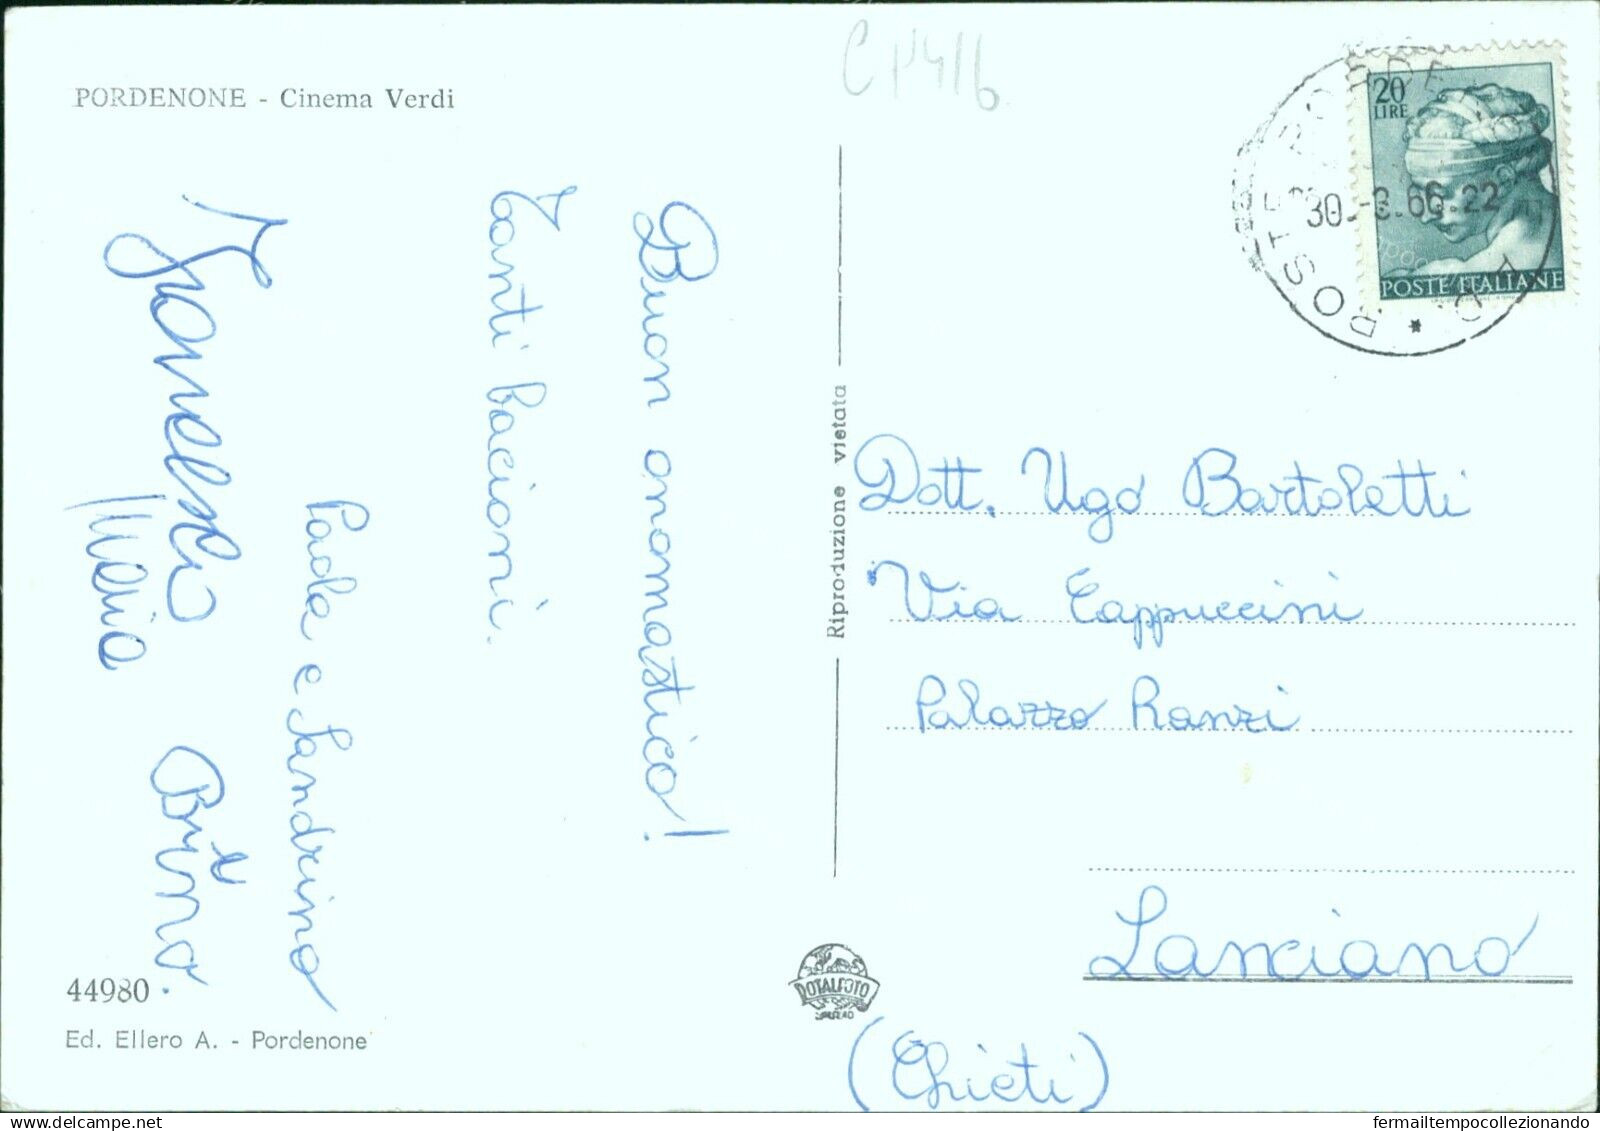 PORDENONE - Cinema Verdi
Buon onomastico!
Tanti bacioni.
Paola e Sandrino
Maria
Bruno.
44980
Ed. Ellero A. - Pordenone
Riproduzione vietata
ROTALFOTO
20
LIRE
POSTE ITALIANE
POSTE
30.-3.66.22
Dott. Ugo Bartoletti
Via Cappuccini
Palazzo Ranzi
Lanciano
(Chieti)
fermailtempocollezionando